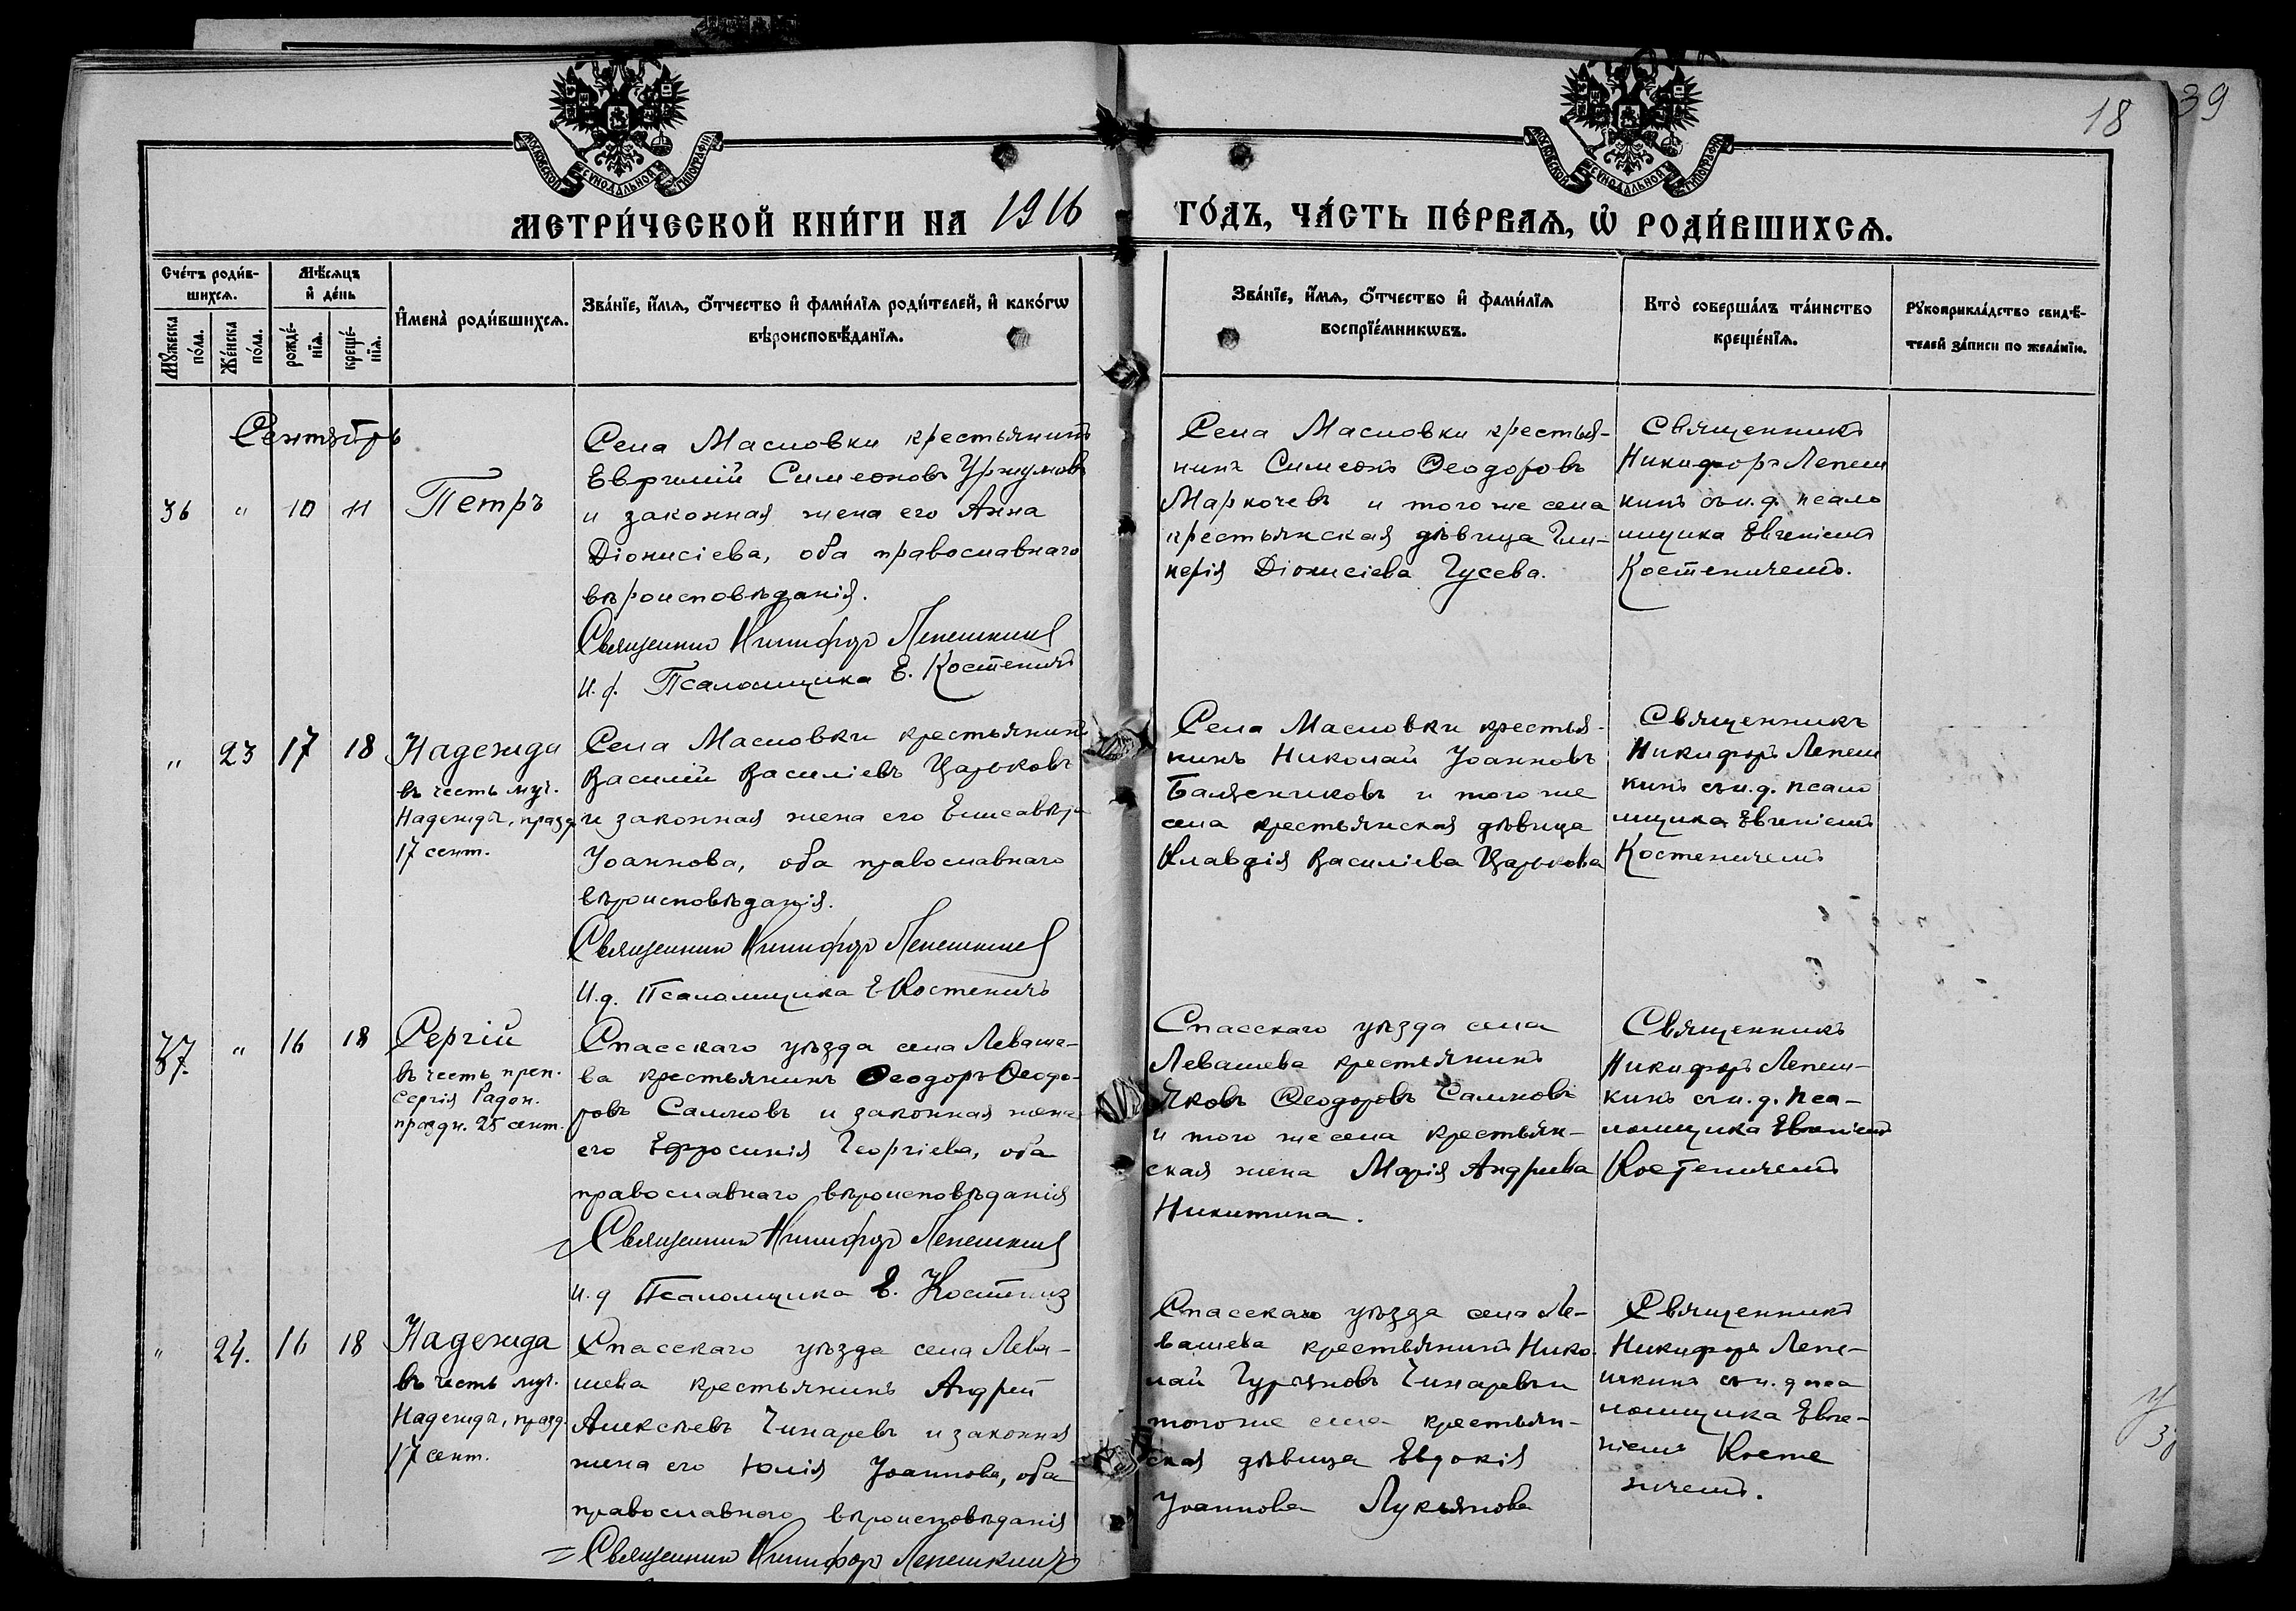 18
39
МОСКОВСКОЙ СѴНОДАЛЬНОЙ ТИПОГРАФІИ
МОСКОВСКОЙ СѴНОДАЛЬНОЙ ТИПОГРАФІИ
МЕТРИ́ЧЕСКОЙ КНИ́ГИ НА 1916 ГО́ДЪ, ЧА́СТЬ ПЕ́РВАѦ, Ѡ҆ РОДИ́ВШИХСѦ.
Сче́тъ роди́в-
шихсѧ.
Мꙋ́жеска по́ла.
Же́нска по́ла.
Мѣ́сѧцъ
и҆ де́нь
рожде́-
нїѧ.
креще́-
нїѧ.
И҆мена̀ роди́вшихсѧ.
Зва́нїе, и҆́мѧ, ѻ҆́тчество и҆ фами́лїѧ роди́телей, и҆ како́гѡ
вѣроисповѣ́данїѧ.
Зва́нїе, и҆́мѧ, ѻ҆́тчество и҆ фами́лїѧ
воспрїе́мникѡвъ.
Кто̀ соверша́лъ та́инство
креще́нїѧ.
Рꙋкоприкла́дство свидѣ́-
телей за́писи по жела́нїю.
Сентябрь
36 " 10 11
Петръ
Села Масловки крестьянинъ
Евфимій Симеоновъ Уржумовъ
и законная жена его Анна
Діонисіева, оба православнаго
вѣроисповѣданія.
Священникъ Никифоръ Лепешкинъ
И. д. Псаломщика Е. Костеничъ
Села Масловки крестья-
нинъ Симеонъ Ѳеодоровъ
Маркочевъ и того же села
крестьянская дѣвица Гли-
керія Діонисіева Гусева.
Священникъ
Никифоръ Лепеш
кинъ съ и. д. псало
мщика Евгеніемъ
Костеничемъ.
" 23 17 18
Надежда
въ честь муч.
Надежды, празд.
17 сент.
Села Масловки крестьянинъ
Василій Василіевъ Царьковъ
и законная жена его Елисавѣта
Іоаннова, оба православнаго
вѣроисповѣданія.
Священникъ Никифоръ Лепешкинъ
И. д. Псаломщика Е Костеничъ
Села Масловки крестья-
нинъ Николай Іоанновъ
и того же
села крестьянская дѣвица
Клавдія Василіева Царькова
Священникъ
Никифоръ Лепеш
кинъ съ и. д. псало
мщика Евгеніемъ
Костеничемъ
37. " 16 18
Сергій
въ честь преп.
Сергія Радон.
праздн. 25 сент.
Спасскаго уѣзда села Леваше-
ва крестьянинъ Ѳеодоръ Ѳеодо-
ровъ Салмовъ и законная жена
его Ефросинія Георгіева, оба
православнаго вѣроисповѣданія
Священникъ Никифоръ Лепешкинъ
И. д Псаломщика Е. Костеничъ
Спасскаго уѣзда села
Левашева крестьянинъ
Яковъ Ѳеодоровъ Салмовъ
и того же села крестьян-
ская жена Марія Андреева
Никитина.
Священникъ
Никифоръ Лепеш-
кинъ съ и. д. пса-
ломщика Евгеніемъ
Костеничемъ
" 24. 16 18
Надежда
въ честь муч.
Надежды, празд.
17 сент.
Спасскаго уѣзда села Лева-
шева крестьянинъ Андрей
Алексѣевъ Чинаревъ и законная
жена его Юлія Іоаннова, оба
православнаго вѣроисповѣданія
Священникъ Никифоръ Лепешкинъ
Спасскаго уѣзда села Ле-
вашева крестьянинъ Нико-
лай Гурьяновъ Чинаревъ и
того же села крестьян-
ская дѣвица Евдокія
Іоаннова Лукьянова
Священникъ
Никифоръ Лепе-
шкинъ съ и. д пса
ломщика Евге-
ніемъ Косте
ничемъ.